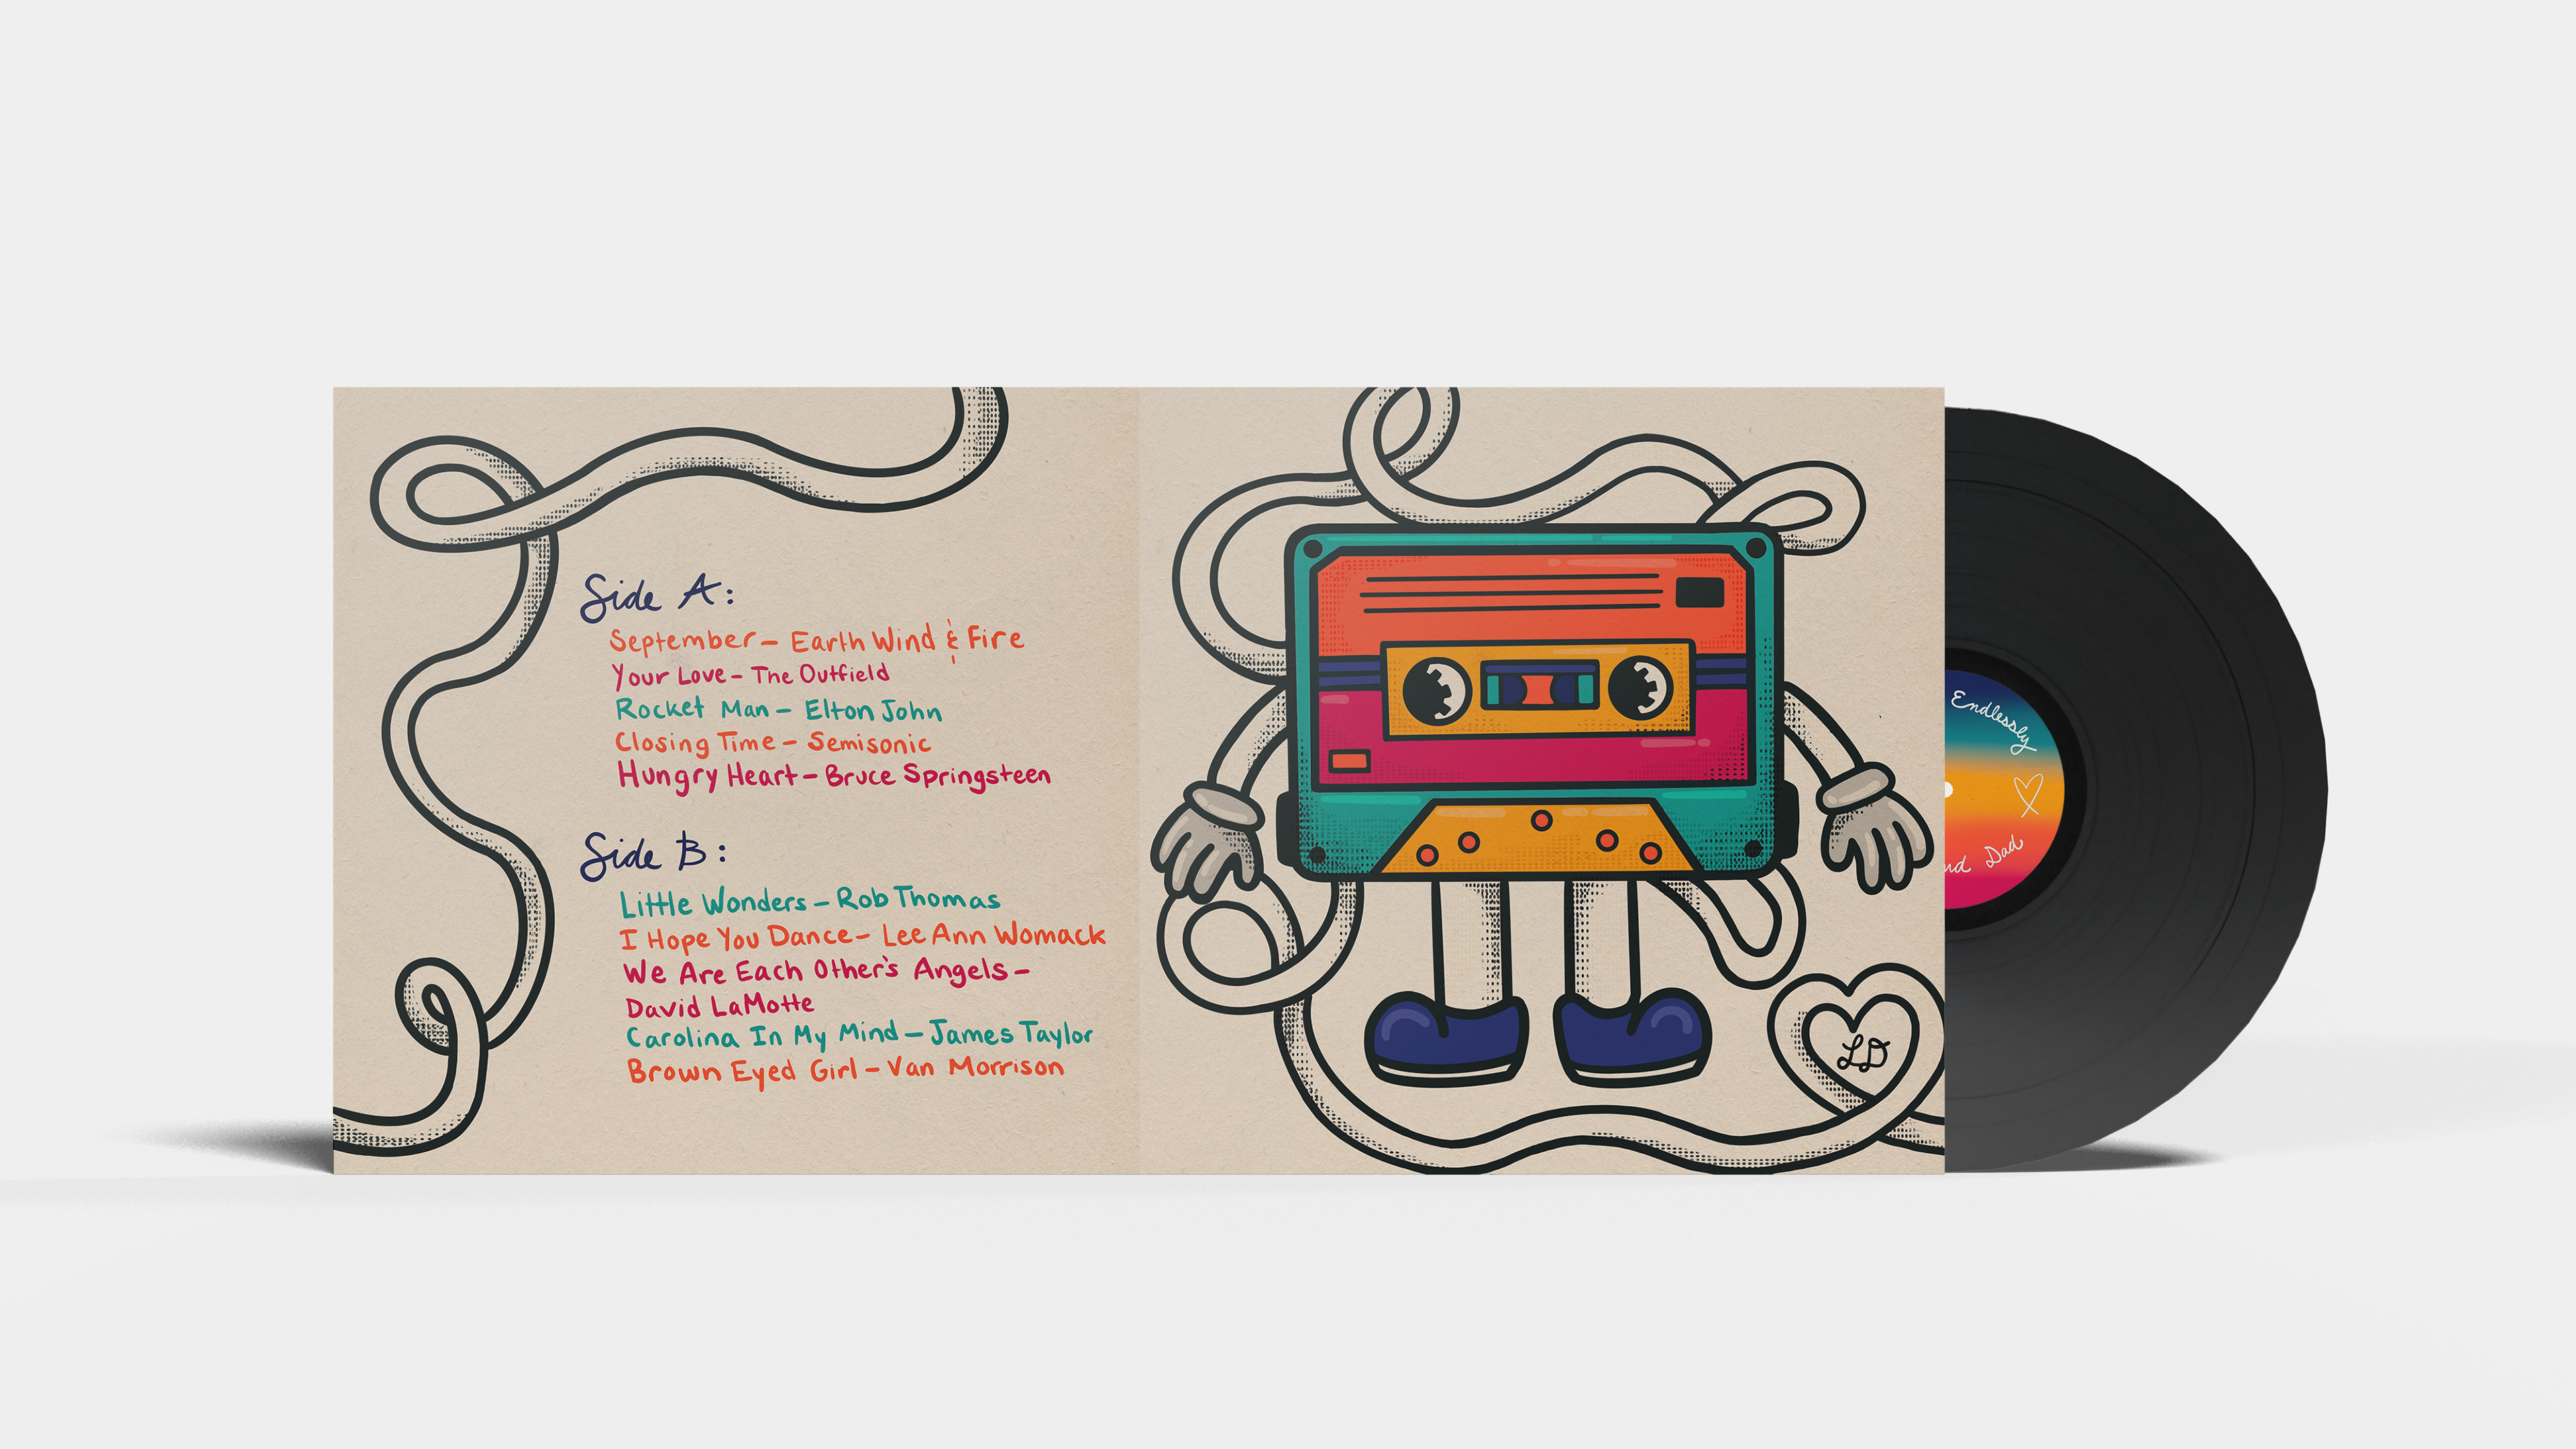 Side A:
September – Earth Wind & Fire
Your Love – The Outfield
Rocket Man – Elton John
Closing Time – Semisonic
Hungry Heart – Bruce Springsteen
Side B:
Little Wonders – Rob Thomas
I Hope You Dance – Lee Ann Womack
We Are Each Other's Angels –
David LaMotte
Carolina In My Mind – James Taylor
Brown Eyed Girl – Van Morrison
LD
Endlessly
Dad